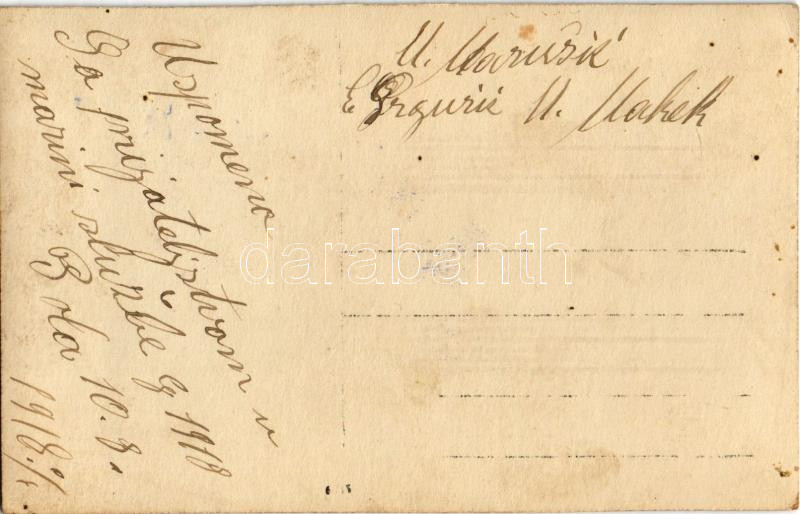 Uspomeno
Ga prijateljstvom u
marini službe g 1918
Pola 10.8.
1918.
M. Marušić
E Grgurić M. Makek
darabanth